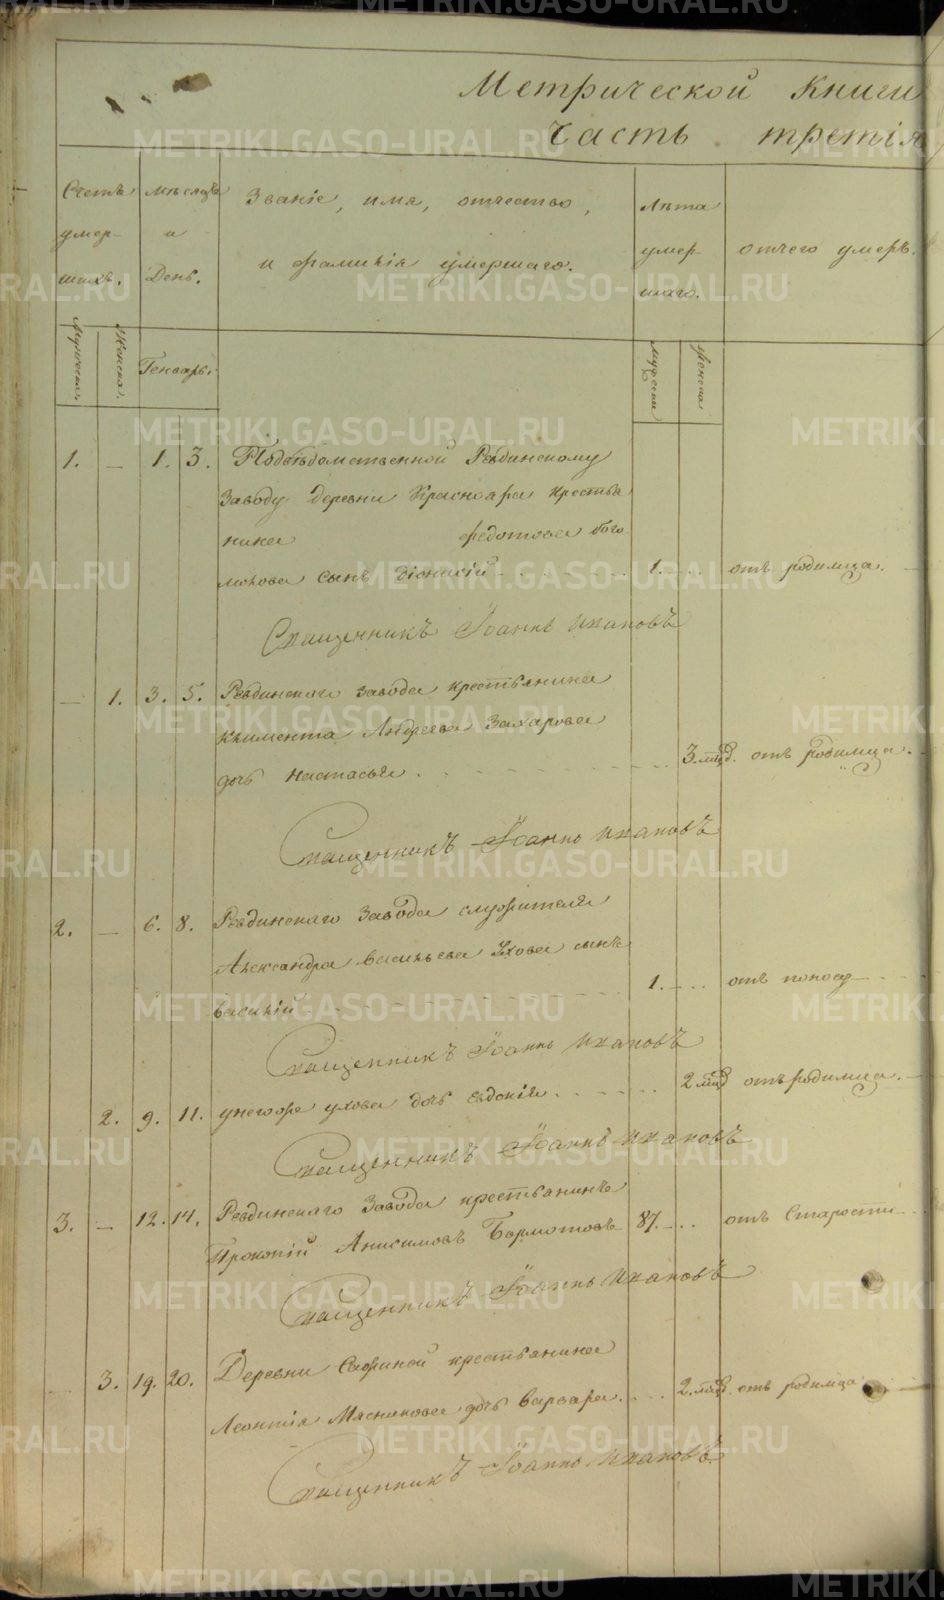 Метрической Книги
Часть третія
Счетъ умершихъ.
Мѣсяцъ и День.
Званіе, имя, отчество,
и фамилія умершаго.
Лѣта умершаго.
отчего умеръ.
Мужеска.
Женска.
Генварь.
мужеска
женска
1. — 1. 3. Подвѣдомственной Ревдинскому
Заводу деревни Краснояра крестья
нина федотова бого
молова сынъ діонисій 1. отъ родимца.
Священникъ Іоаннъ
— 1. 3. 5. Ревдинскаго завода крестьянина
климента Андреева Захарова
дочь настасья 3. мѣс. отъ родимца.
Священникъ Іоаннъ
2. — 6. 8. Ревдинскаго завода служителя
Александра васильева Ухова сынъ
василій 1. отъ поносу
Священникъ Іоаннъ
2. 9. 11. ухова дочь евдокія 2 мѣс. отъ родимца.
Священникъ Іоаннъ
3. — 12. 14. Ревдинскаго Завода крестьянинъ
Прокопій Анисимовъ Бормотовъ 87. отъ Старости
Священникъ Іоаннъ
— 3. 19. 20. Деревни крестьянина
Леонтія Мясникова дочь варвара 2. мѣс. отъ родимца
Священникъ Іоаннъ
METRIKI.GASO-URAL.RU